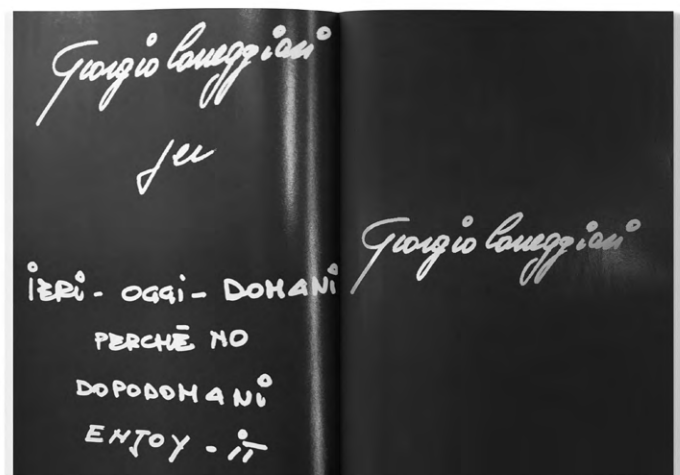 Giorgio Correggiari
iERi - OGGi - DOMANi
PERCHÉ NO
DOPODOMANi
ENJOY - iT
Giorgio Correggiari